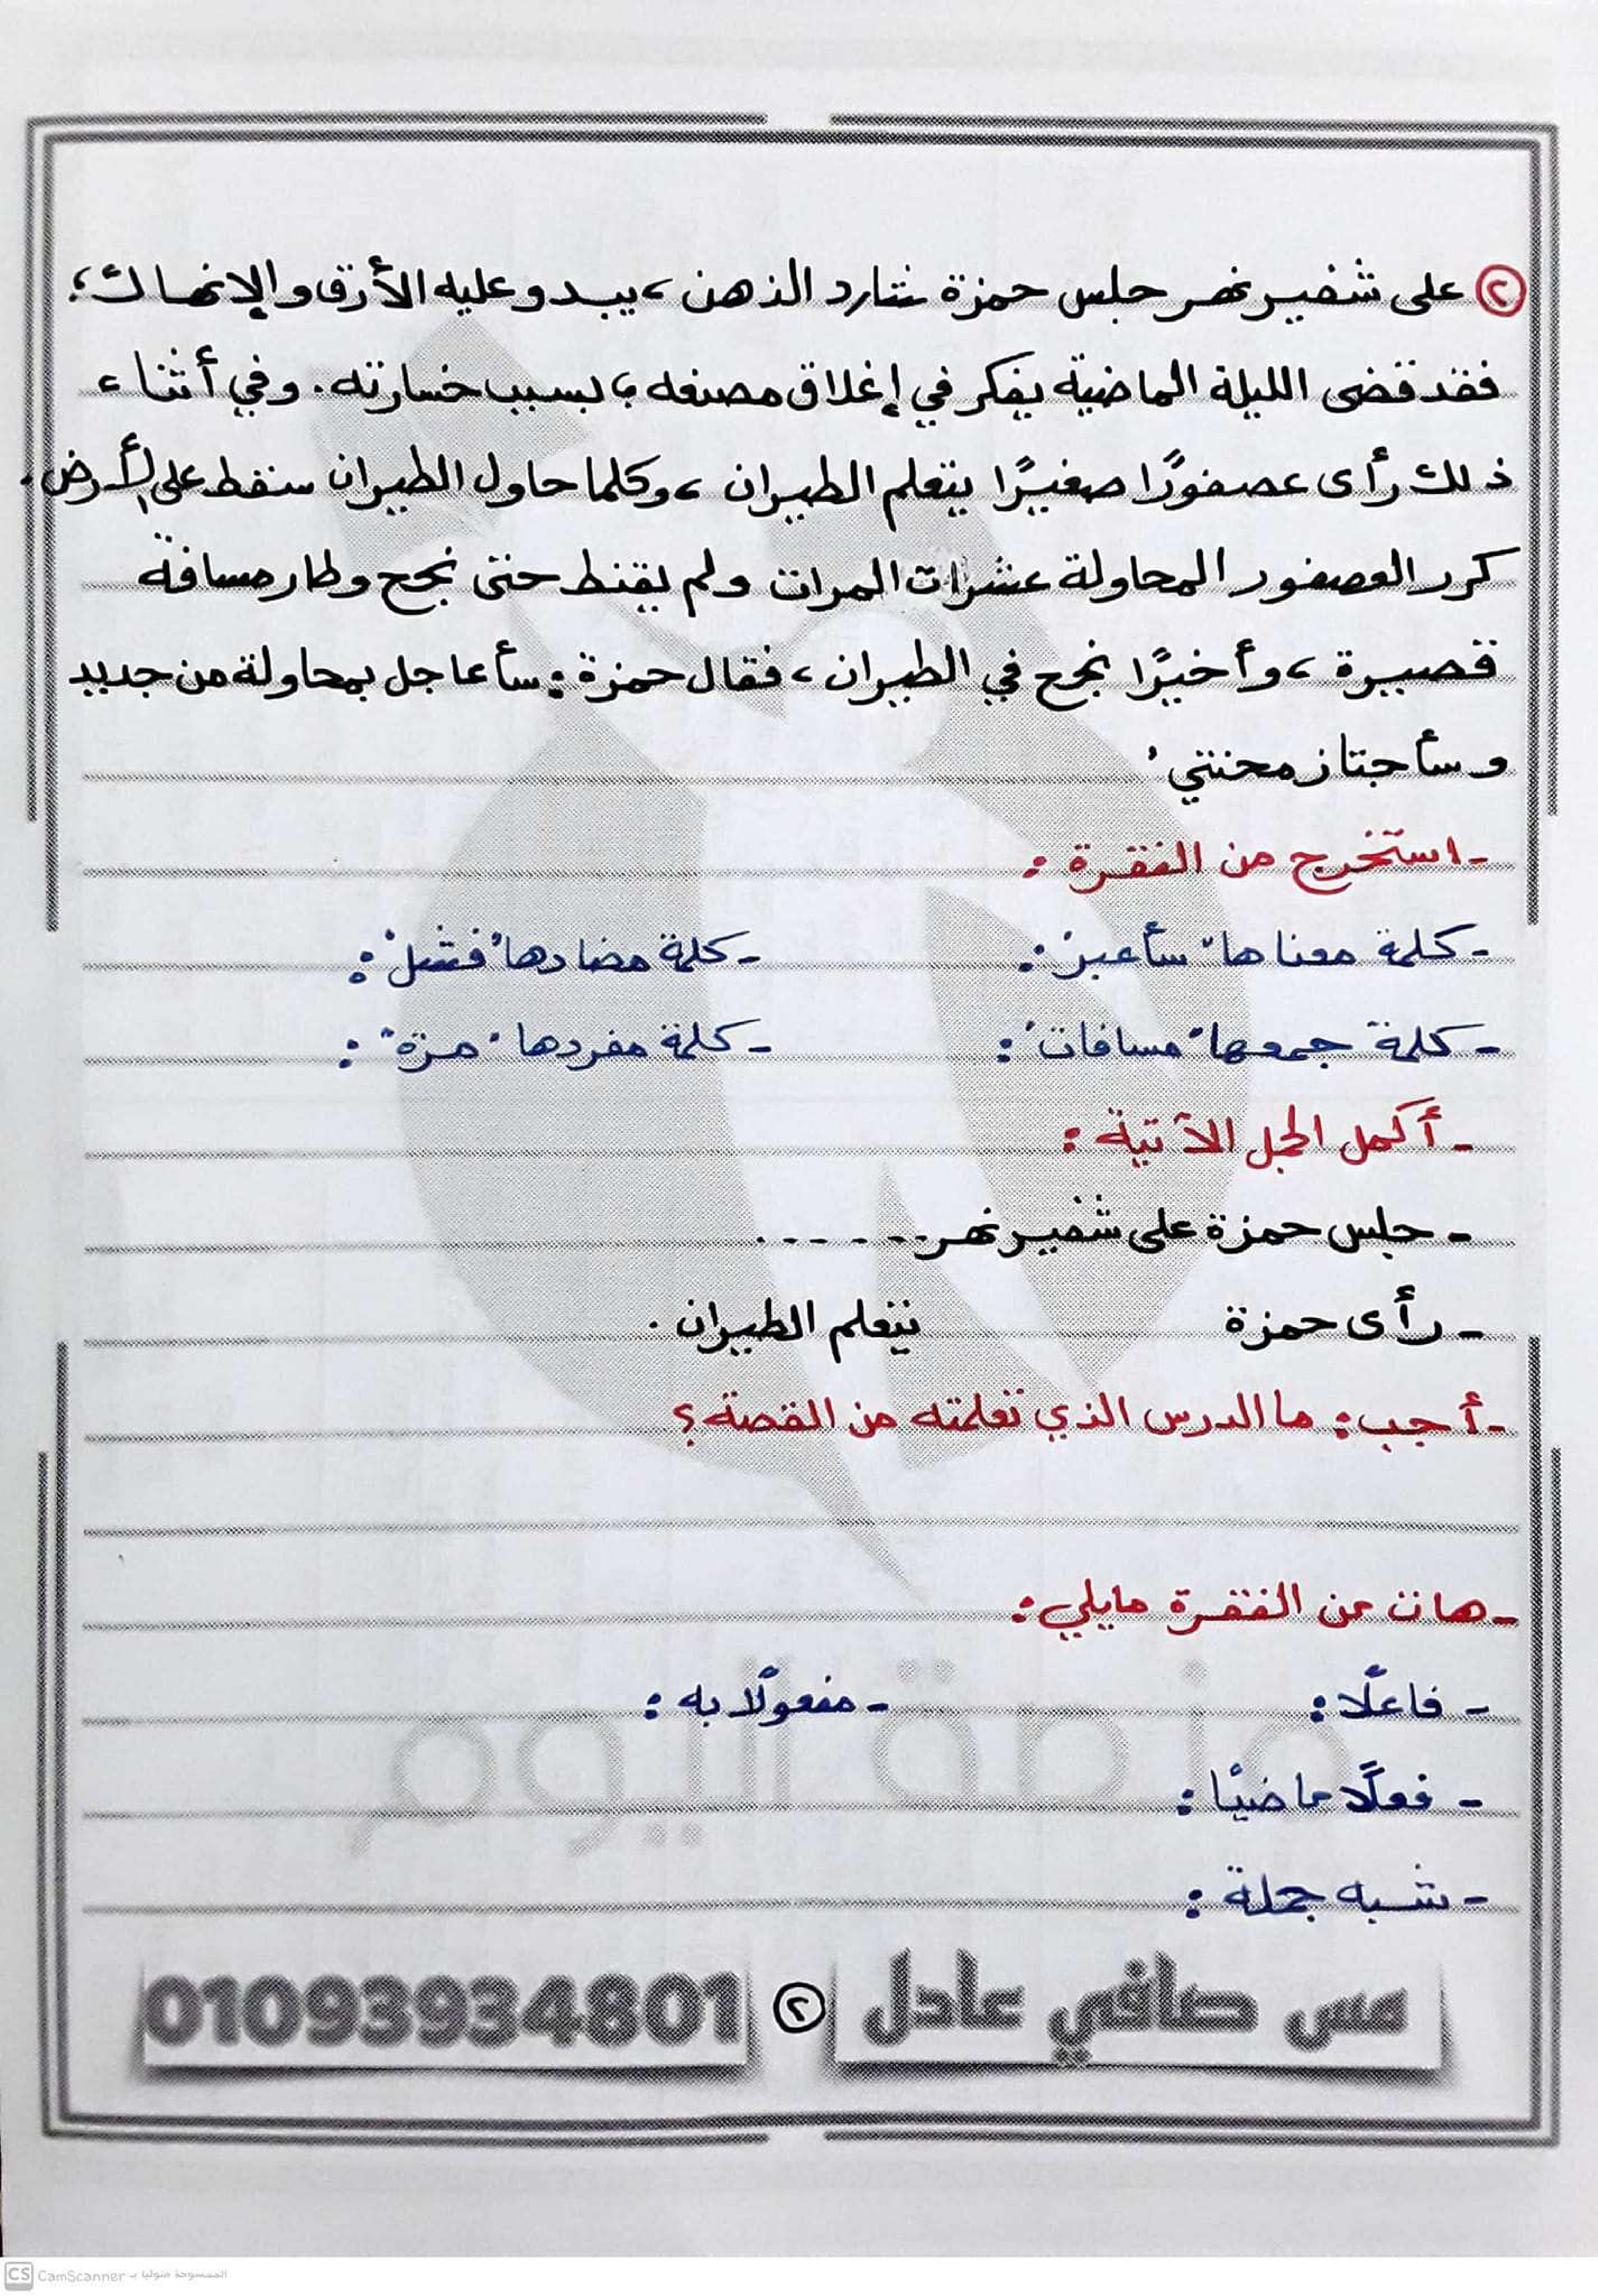 ٢ على شفير نهر جلس حمزة شارد الذهن، يبدو عليه الأرق والإنهاك؛
فقد قضى الليلة الماضية يفكر في إغلاق مصنعه؛ بسبب خسارته. وفي أثناء
ذلك رأى عصفورًا صغيرًا يتعلم الطيران، وكلما حاول الطيران سقط على الأرض.
كرر العصفور المحاولة عشرات المرات ولم يقنط حتى نجح وطار مسافة
قصيرة، وأخيرًا نجح في الطيران، فقال حمزة: سأعاجل بمحاولة من جديد
وسأجتاز محنتي.
- استخرج من الفقرة:
- كلمة معناها "سأعبر": - كلمة مضادها "فشل":
- كلمة جمعها "مسافات": - كلمة مفردها "مرة":
- أكمل الجمل الآتية:
- جلس حمزة على شفير نهر ......
- رأى حمزة يتعلم الطيران.
- أجب: ما الدرس الذي تعلمته من القصة؟
- هات من الفقرة مايلي:
- فاعلًا: - مفعولًا به:
- فعلًا ماضيًا:
- شبه جملة:
منصة اليوم
مس صافي عادل ٢ 01093934801
CS CamScanner الممسوحة ضوئيا بـ